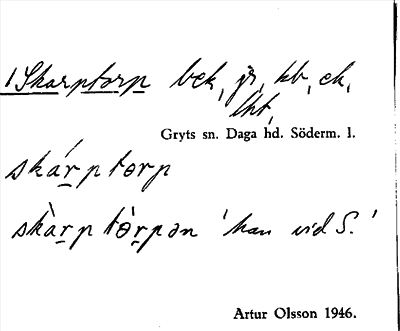 1 Skarptorp bek, jr, kb, ek,
lht,
Gryts sn. Daga hd. Söderm. l.
ská̱rptorp
skà̱rptò̱rpən 'han vid S.'
Artur Olsson 1946.